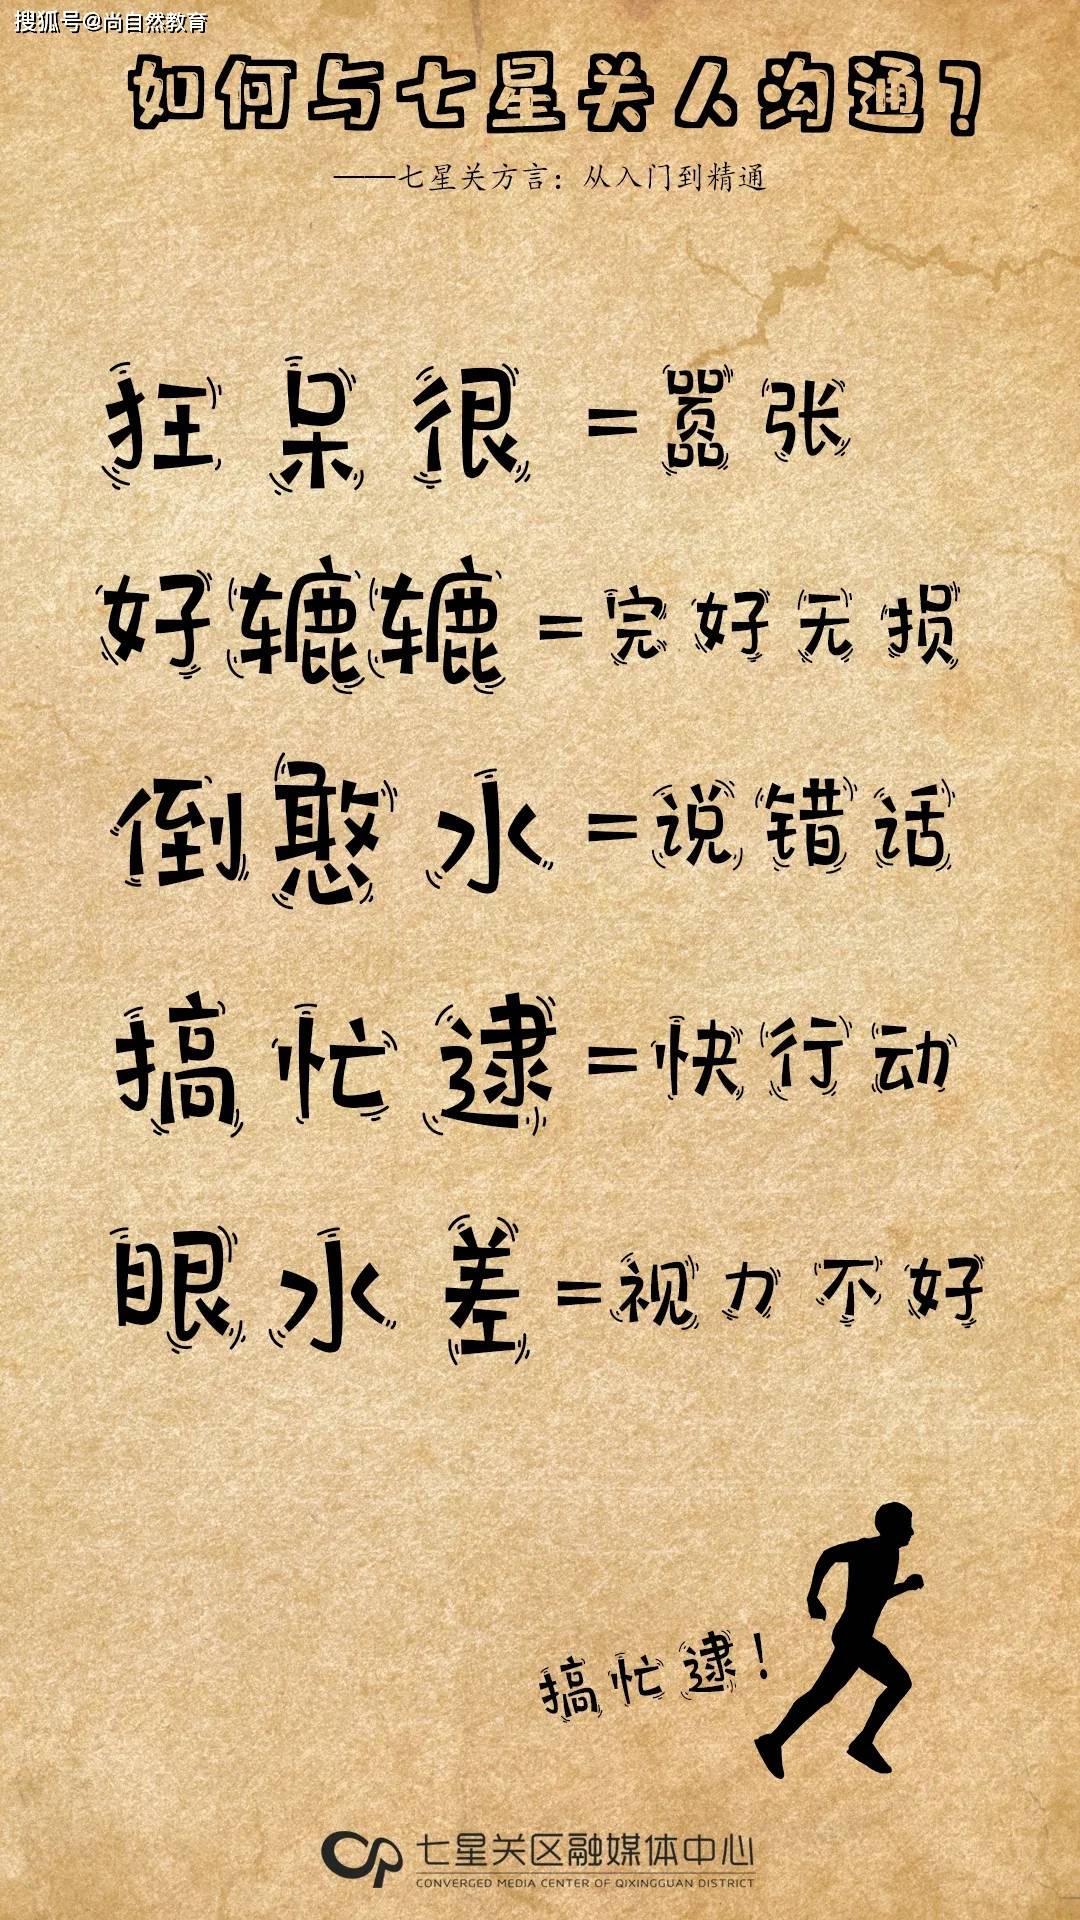 搜狐号@尚自然教育
如何与七星关人沟通?
——七星关方言：从入门到精通
狂呆很=嚣张
好辘辘=完好无损
倒憨水=说错话
搞忙逮=快行动
眼水差=视力不好
搞忙逮!
七星关区融媒体中心
CONVERGED MEDIA CENTER OF QIXINGGUAN DISTRICT